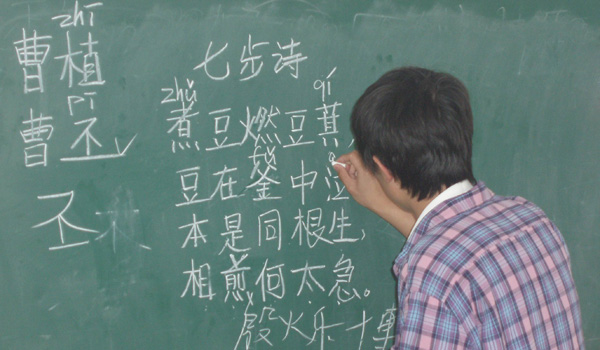 zhí
曹植
pī
曹丕
丕
七步诗
zhǔ qí
煮豆燃豆萁,
fǔ
豆在釜中泣
本是同根生,
相煎何太急。
殷火乐十